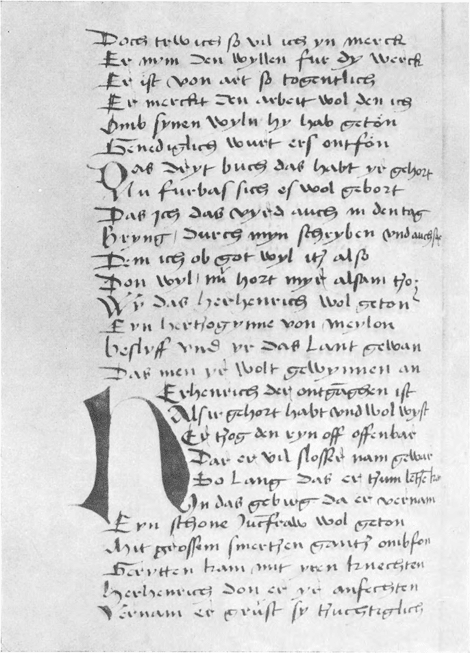 Doch trw ich so vil ich yn merck
Er nym den wyllen fur dy werck
Er ist von art so togentlich
Er merckt den arbeit wol den ich
Vmb synen wyln hy hab getön
Genediglich wurt ers ontfön
Das buch das habt yr gehort
Nu furbas sich es wol gebort
Das ich das vyrd auch in den tag
Bryng durch myn schryben vnd auch
Dem ich ob got wyl itz also
Don wyl mir hort myr alsam
Wy das herhenrich wol geton
Eyn hertzogynne von meylon
beslyff vnd yr das lant gewan
Das men yr wolt gewynnen an
Herhenrich der ist
Als ir gehort habt vnd wol wyst
Er tzog den ryn off offenbar
Dar er vil slosser nam gewar
So lang das er tzum
In das gebirg da er vernam
Eyn schone Juncfraw wol geton
Mit grossem smertzen gantz ombfon
Gerytten kam mit yren knechten
Herhenrich don er yr anfechten
Vernam er grust sy tzuchtiglich